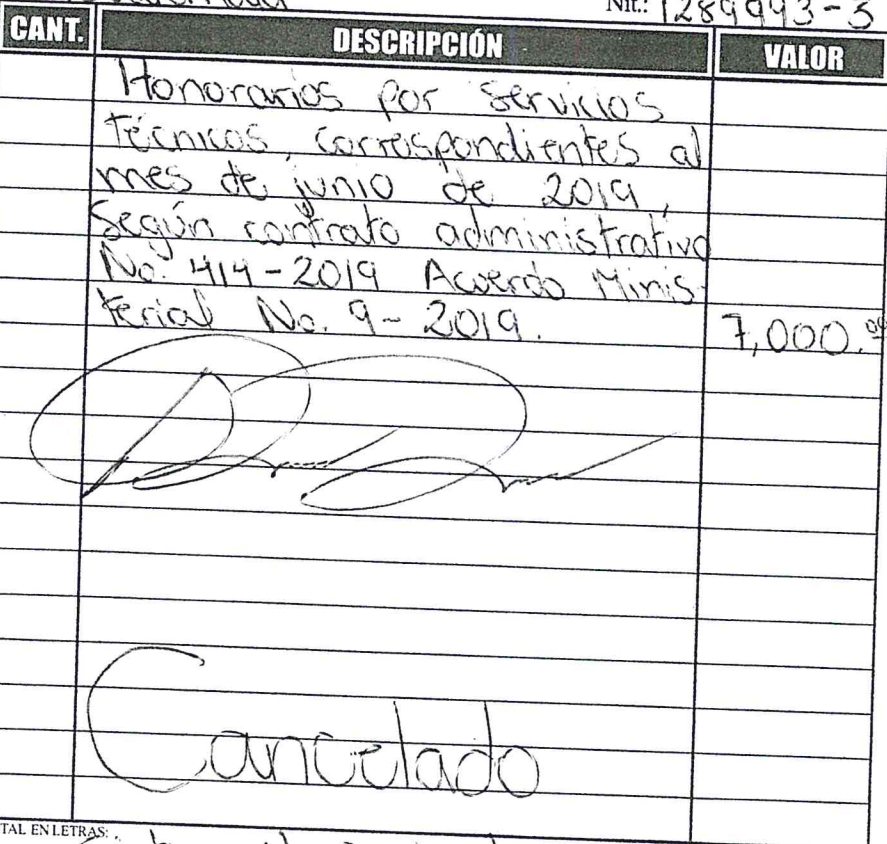 Nit.: 1289993-5
CANT. DESCRIPCIÓN VALOR
Honorarios por servicios
técnicos, correspondientes al
mes de junio de 2019,
Según contrato administrativo
No. 414-2019 Acuerdo Minis-
terial No. 9-2019. 7,000.00
Cancelado
TAL EN LETRAS: